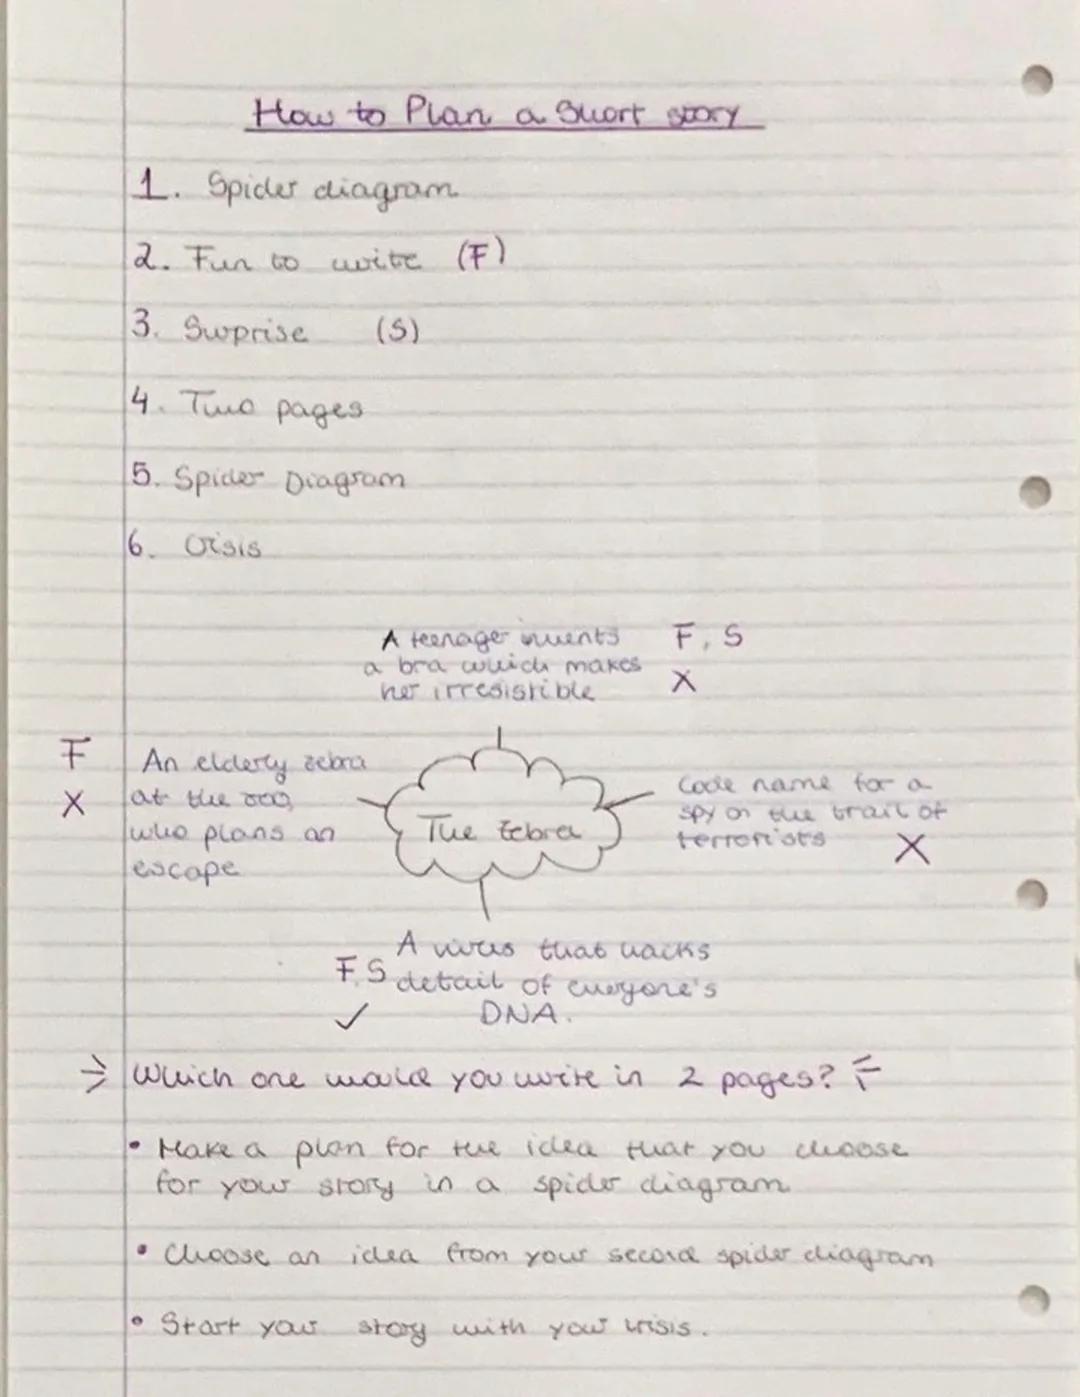 How to Plan a Short story
1. Spider diagram
2. Fun to write (F)
3. Surprise (S)
4. Two pages
5. Spider Diagram
6. Crisis
A teenager invents F, S
a bra which makes X
her irresistible
F An elderly zebra
X at the zoo,
who plans an
escape
The Zebra
Code name for a
spy on the trail of
terrorists X
A virus that hacks
F.S detail of everyone's
✓ DNA.
Which one would you write in 2 pages?
• Make a plan for the idea that you choose
for your story in a spider diagram
• Choose an idea from your second spider diagram
• Start your story with your crisis.